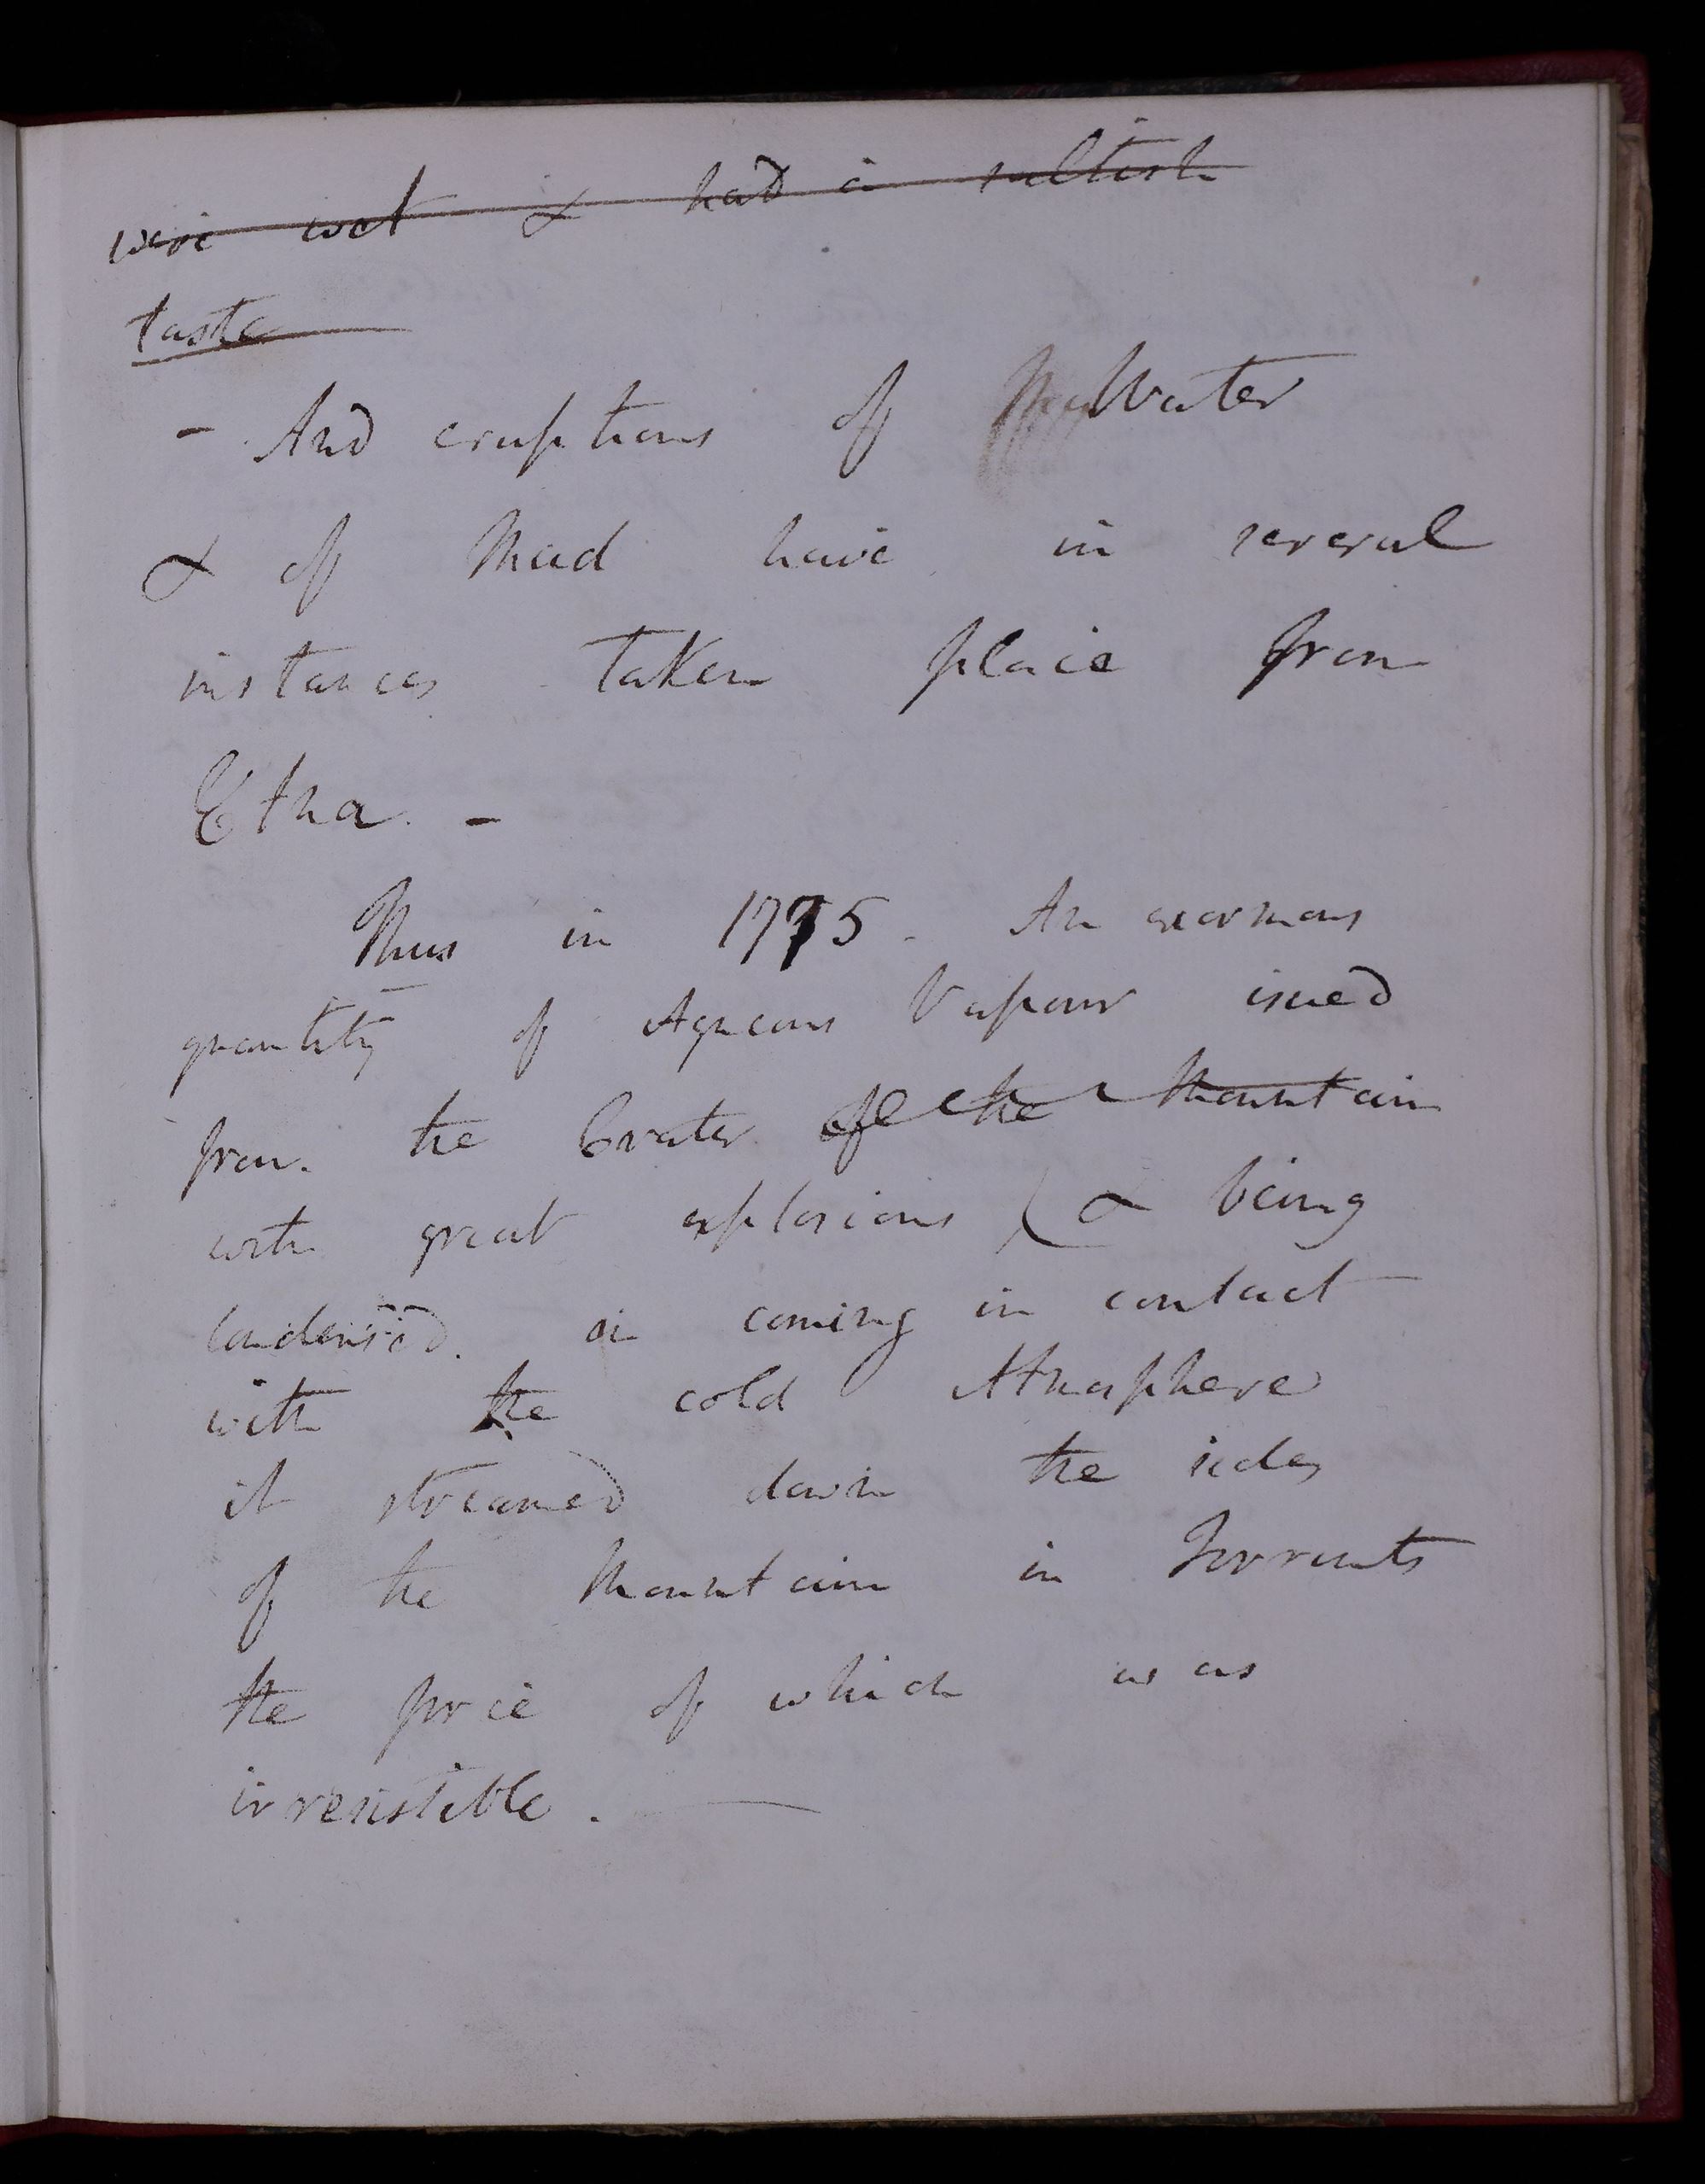 were wet & had a saltish
taste
- And eruptions of Water
& of Mud have in several
instances taken place from
Etna. -
Thus in 1775 - An enormous
quantity of Aqueous Vapour issued
from the Crater of the Mountain
with great explosions (& being
condensed. on coming in contact
with the cold Atmosphere
it streamed down the sides
of the Mountain in Torrents
the force of which was
irresistible. —